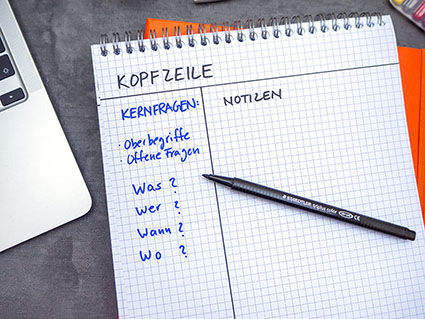 KOPFZEILE
KERNFRAGEN:
NOTIZEN
· Oberbegriffe
· Offene Fragen
Was ?
Wer ?
Wann ?
Wo ?
STAEDTLER